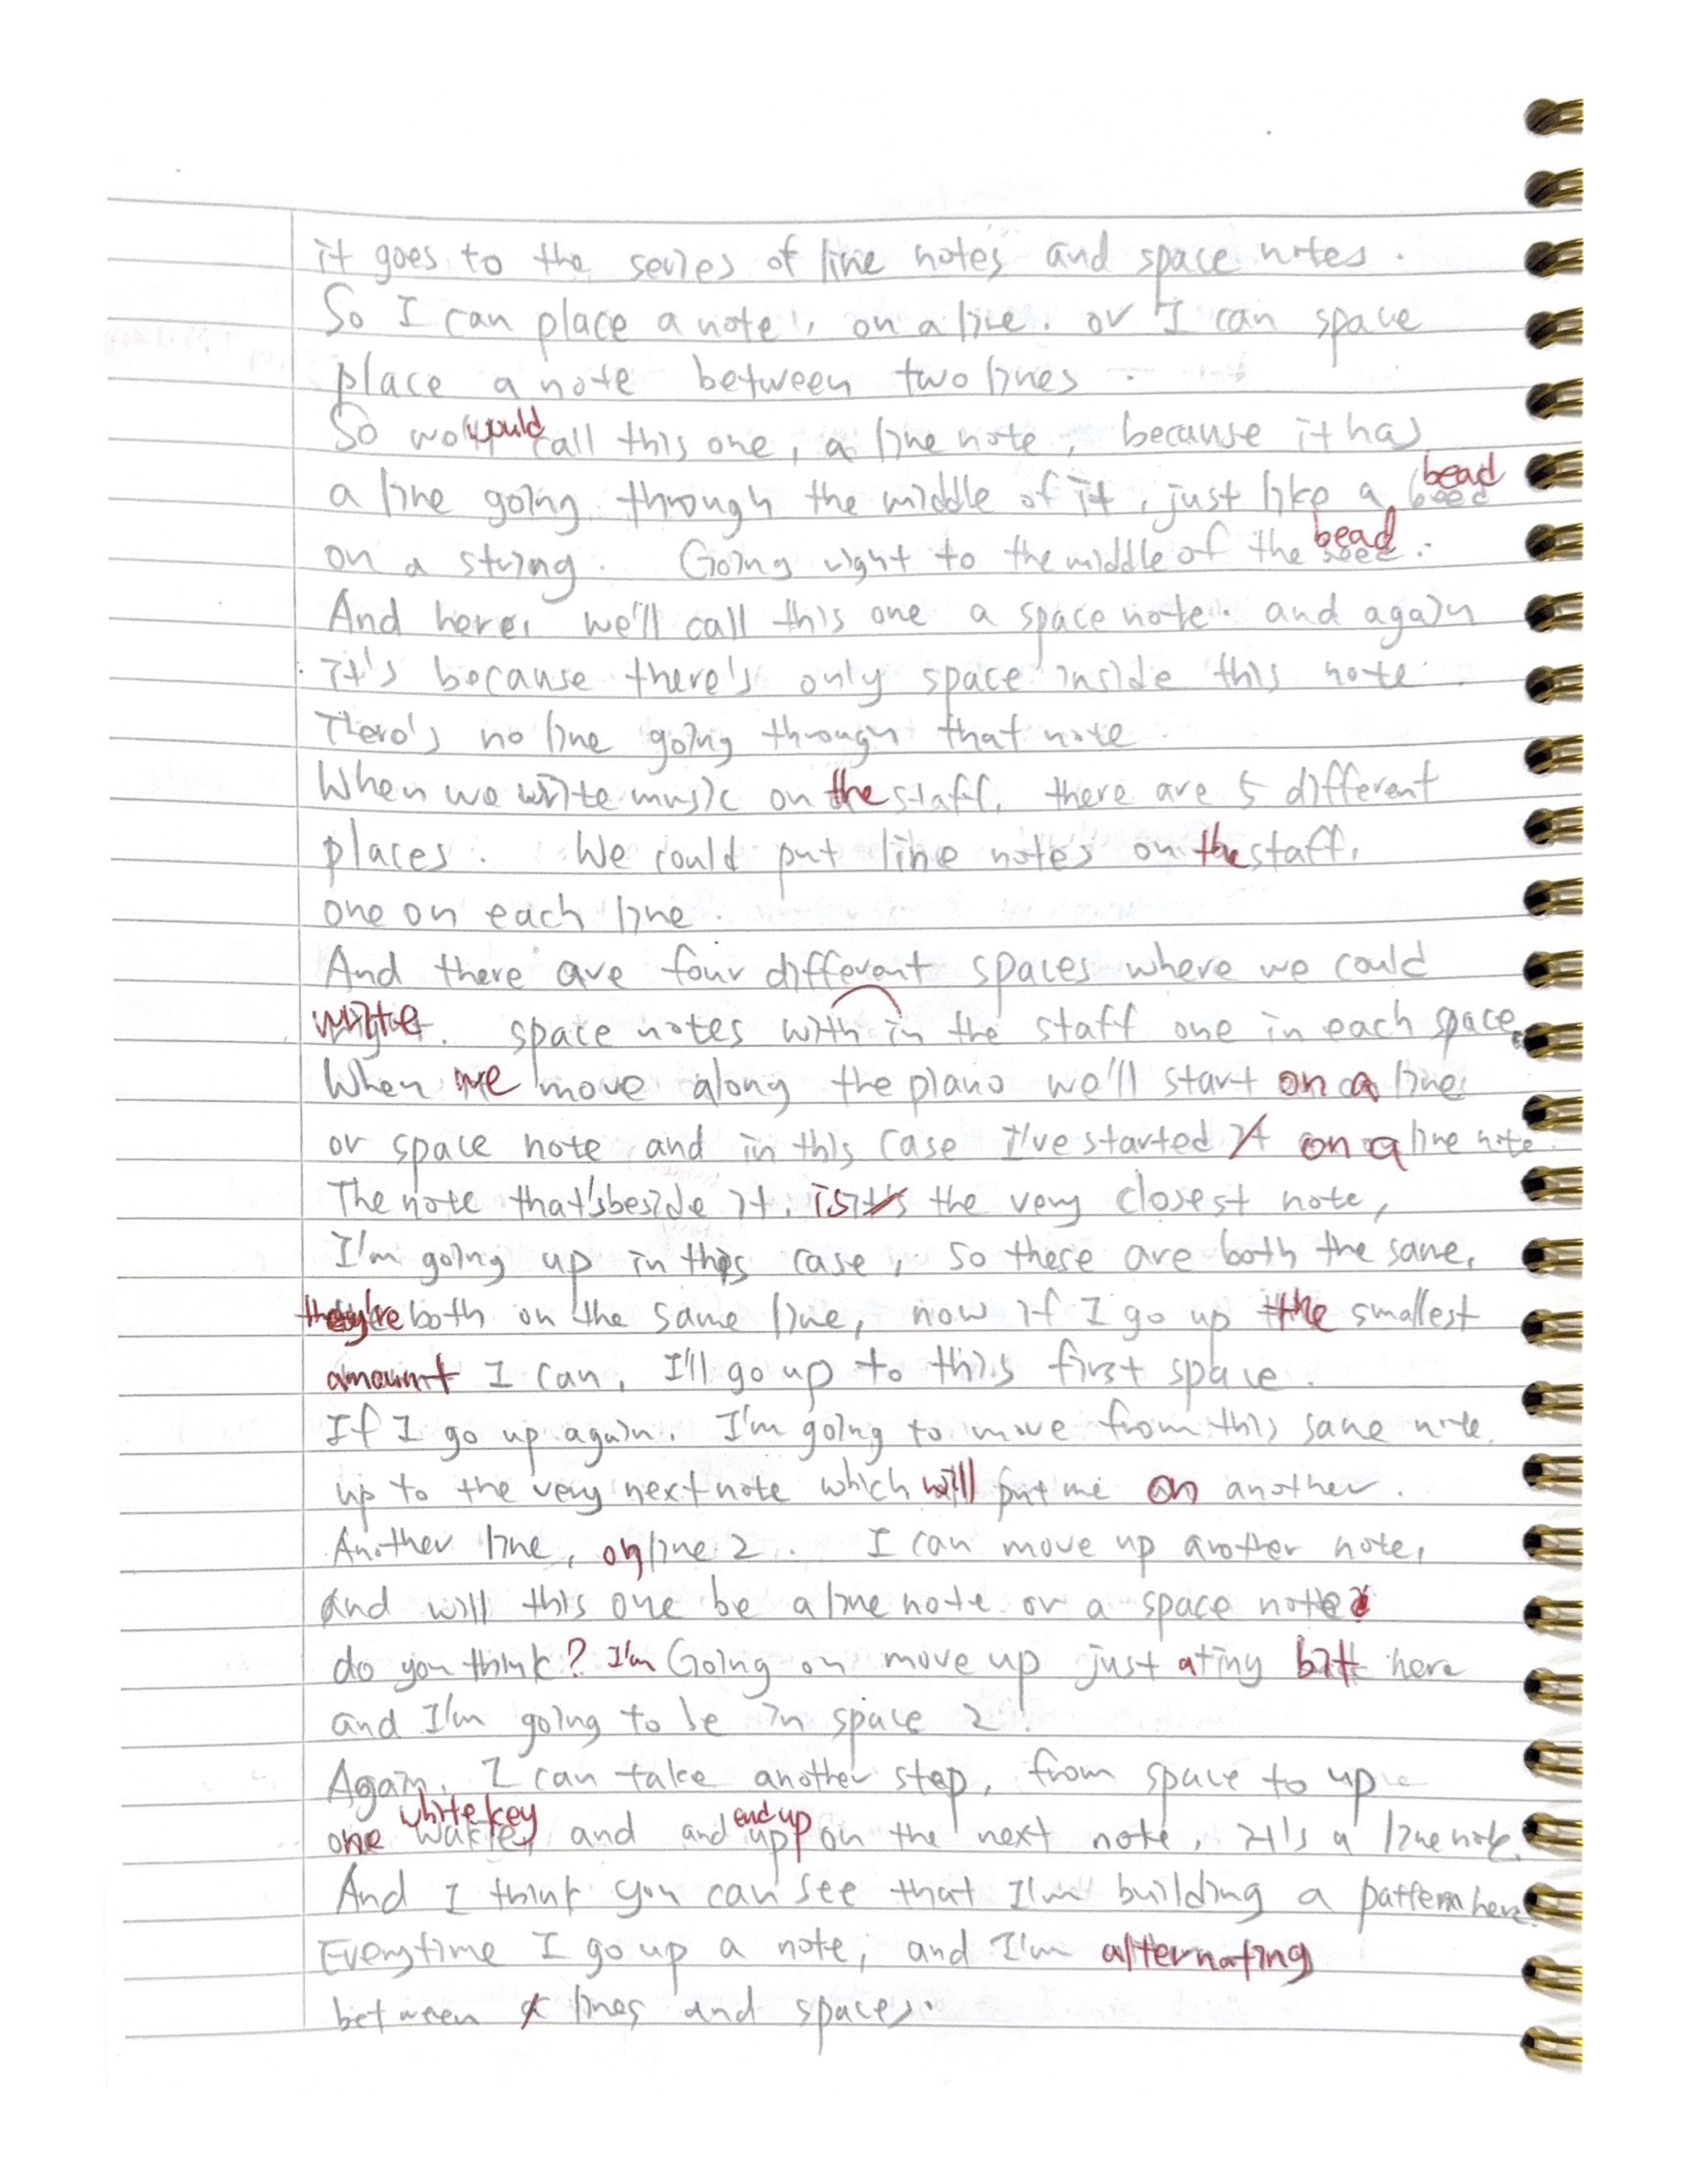 it goes to the series of line notes and space notes.
So I can place a note, on a line. or I can space
place a note between two lines.
So would call this one, a line note, because it has
a line going through the middle of it, just like a bead
on a string. Going right to the middle of the bead.
And here, we'll call this one a space note. and again
it's because there's only space inside this note.
There's no line going through that note
When we write music on the staff, there are 5 different
places. We could put line notes on the staff,
one on each line.
And there are four different spaces where we could
write. space notes with in the staff one in each space.
When we move along the piano we'll start on a line
or space note and in this case I've started it on a line note.
The note that's beside it. is it's the very closest note,
I'm going up in this case, so these are both the same,
they're both on the same line, now if I go up the smallest
amount I can, I'll go up to this first space.
If I go up again. I'm going to move from this same note
up to the very next note which will put me on another.
Another line, on line 2. I can move up another note,
And will this one be a line note or a space note
do you think? I'm Going on move up just a tiny bit here
and I'm going to be in space 2.
Again, I can take another step, from space to up
one white key and and end up on the next note, it's a line note.
And I think you can see that I'm building a pattern here.
Everytime I go up a note, and I'm alternating
between lines and spaces.